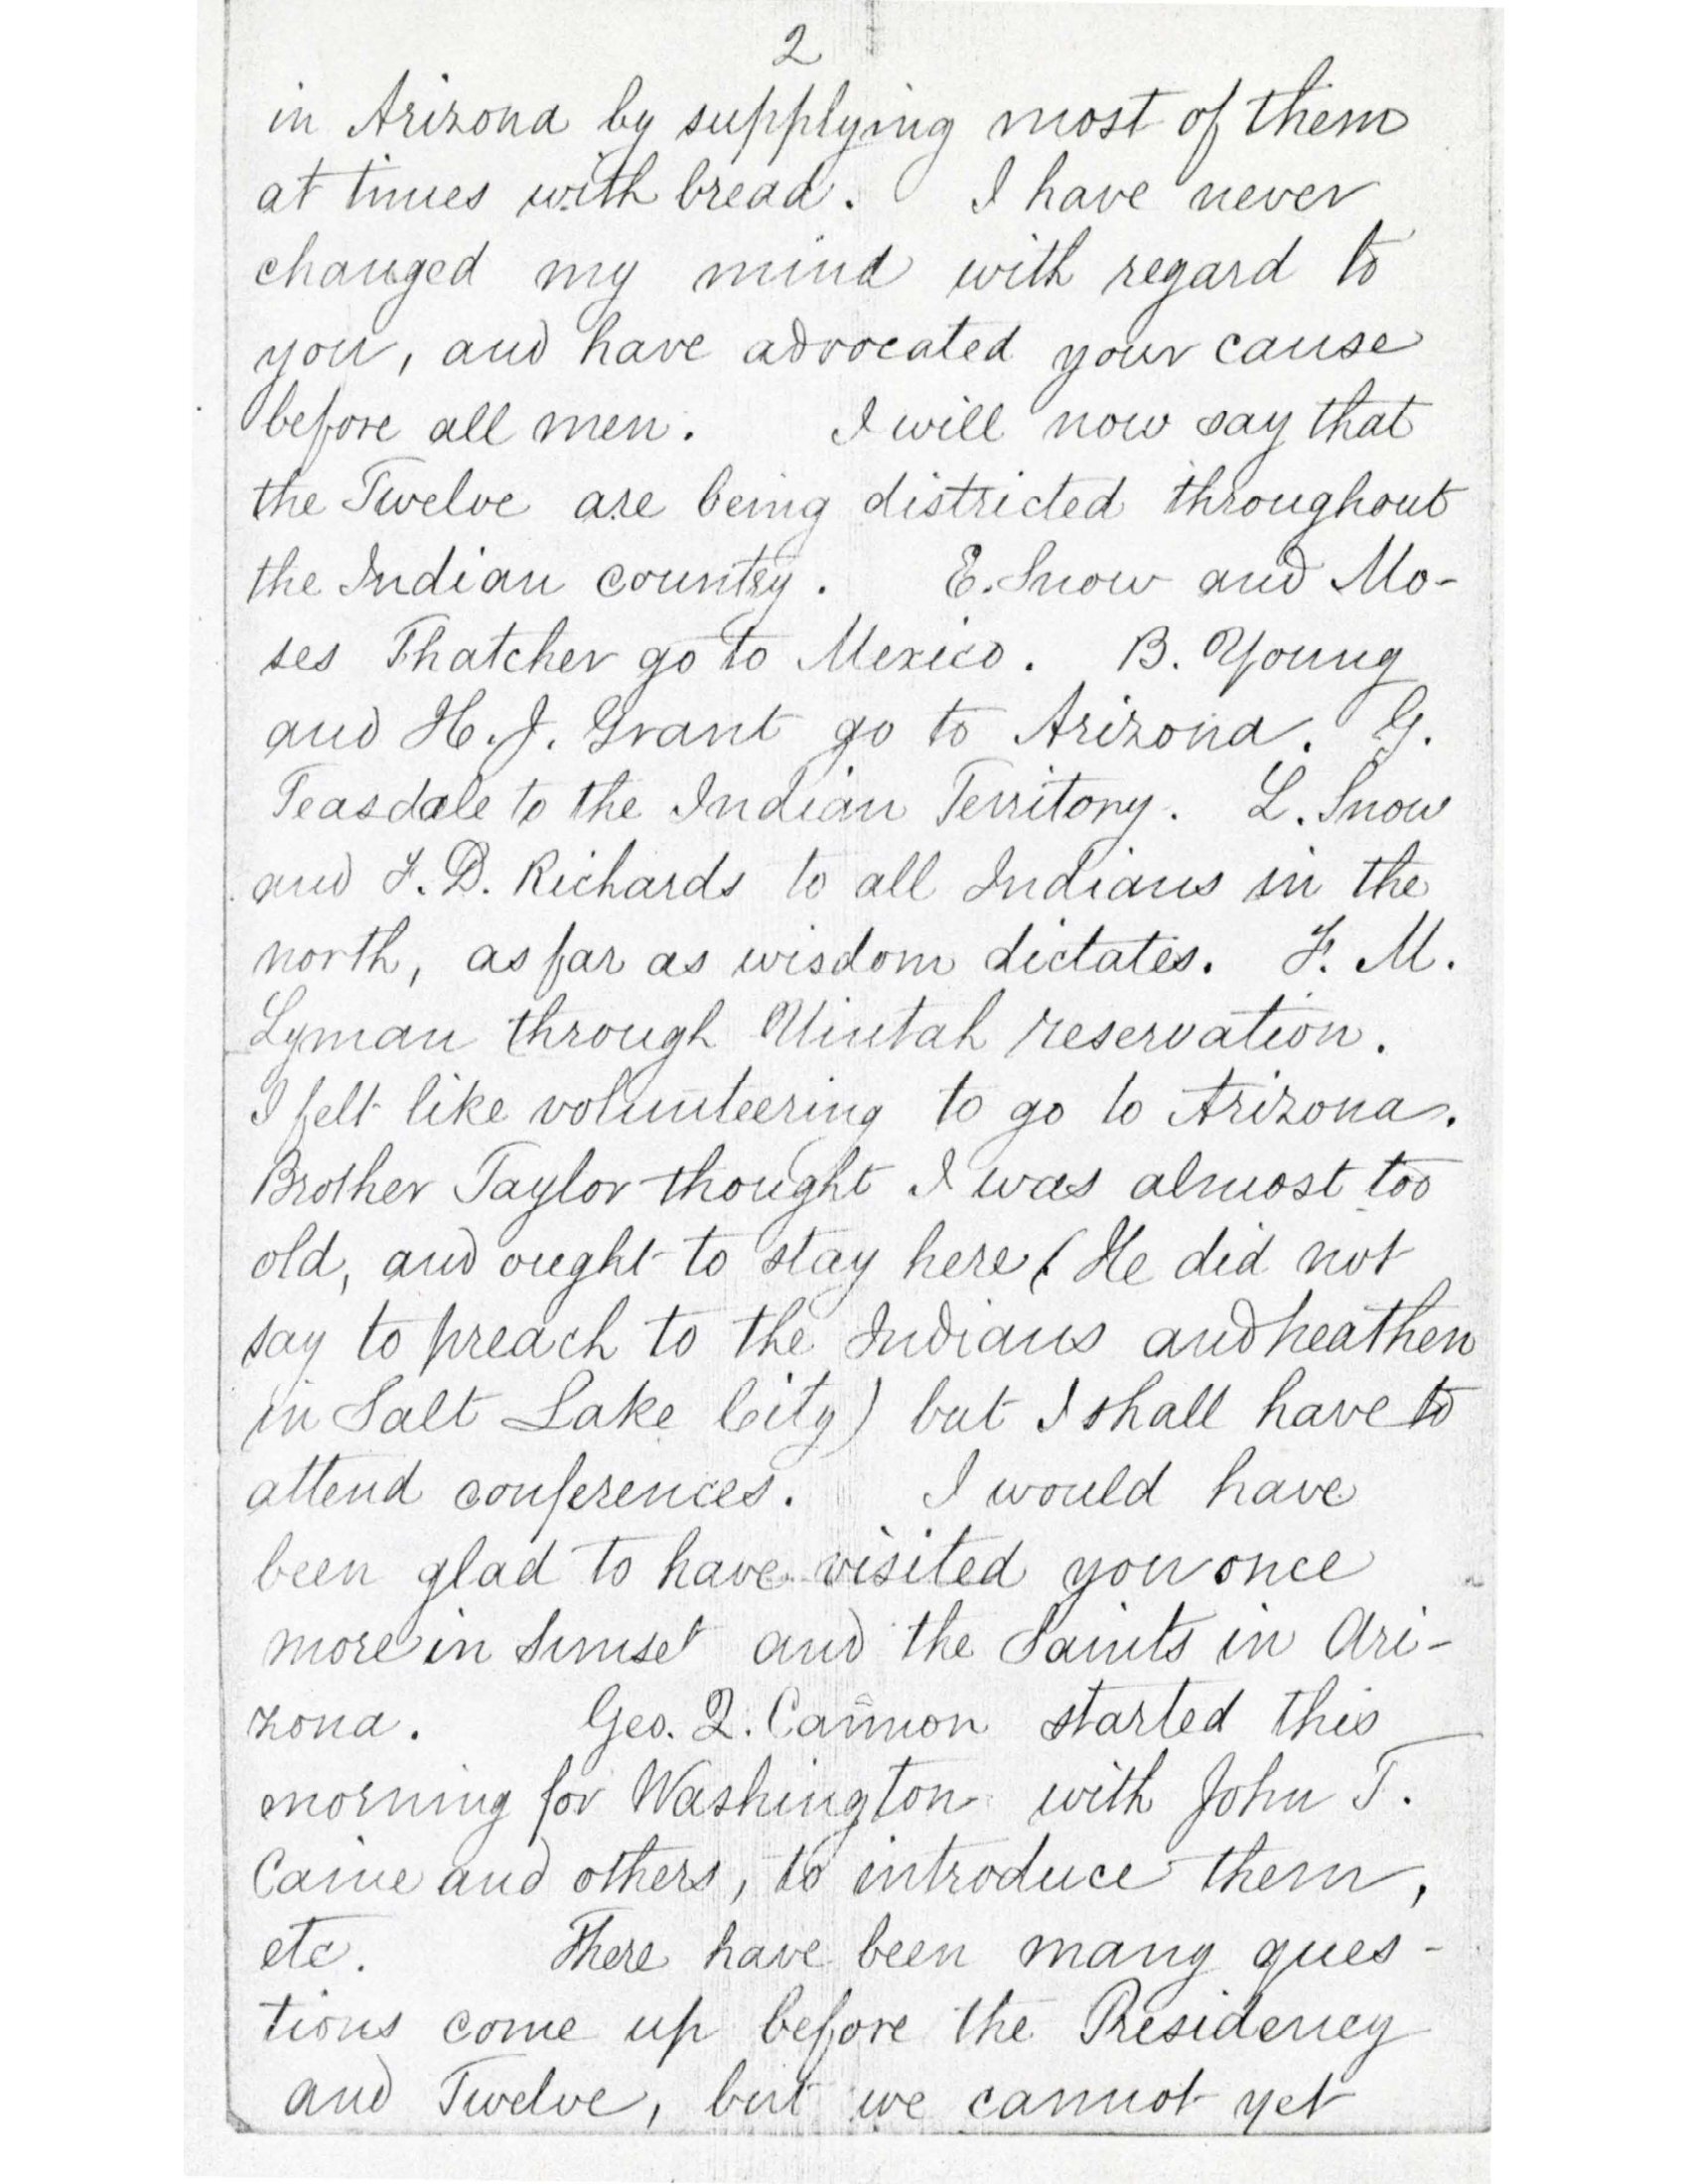 2
in Arizona by supplying most of them
at times with bread. I have never
changed my mind with regard to
you, and have advocated your cause
before all men. I will now say that
the Twelve are being districted throughout
the Indian country. E. Snow and Mo-
ses Thatcher go to Mexico. B. Young
and H. J. Grant go to Arizona. G.
Teasdale to the Indian Territory. L. Snow
and F. D. Richards to all Indians in the
north, as far as wisdom dictates. F. M.
Lyman through Uintah reservation.
I felt like volunteering to go to Arizona.
Brother Taylor thought I was almost too
old, and ought to stay here (He did not
say to preach to the Indians and heathen
in Salt Lake City) but I shall have to
attend conferences. I would have
been glad to have visited you once
more in Sunset and the Saints in Ari-
zona. Geo. Q. Cannon started this
morning for Washington with John T.
Caine and others, to introduce them,
etc. There have been many ques-
tions come up before the Presidency
and Twelve, but we cannot yet